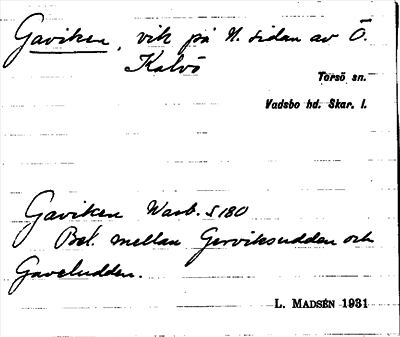 Gaviken, vik på N. sidan av Ö.
Kalvö
Torsö sn.
Vadsbo hd. Skar. l.
Gaviken Warb. S 180
Bel. mellan Gerviksudden och
Gaveludden.
L. MADSÉN 1931